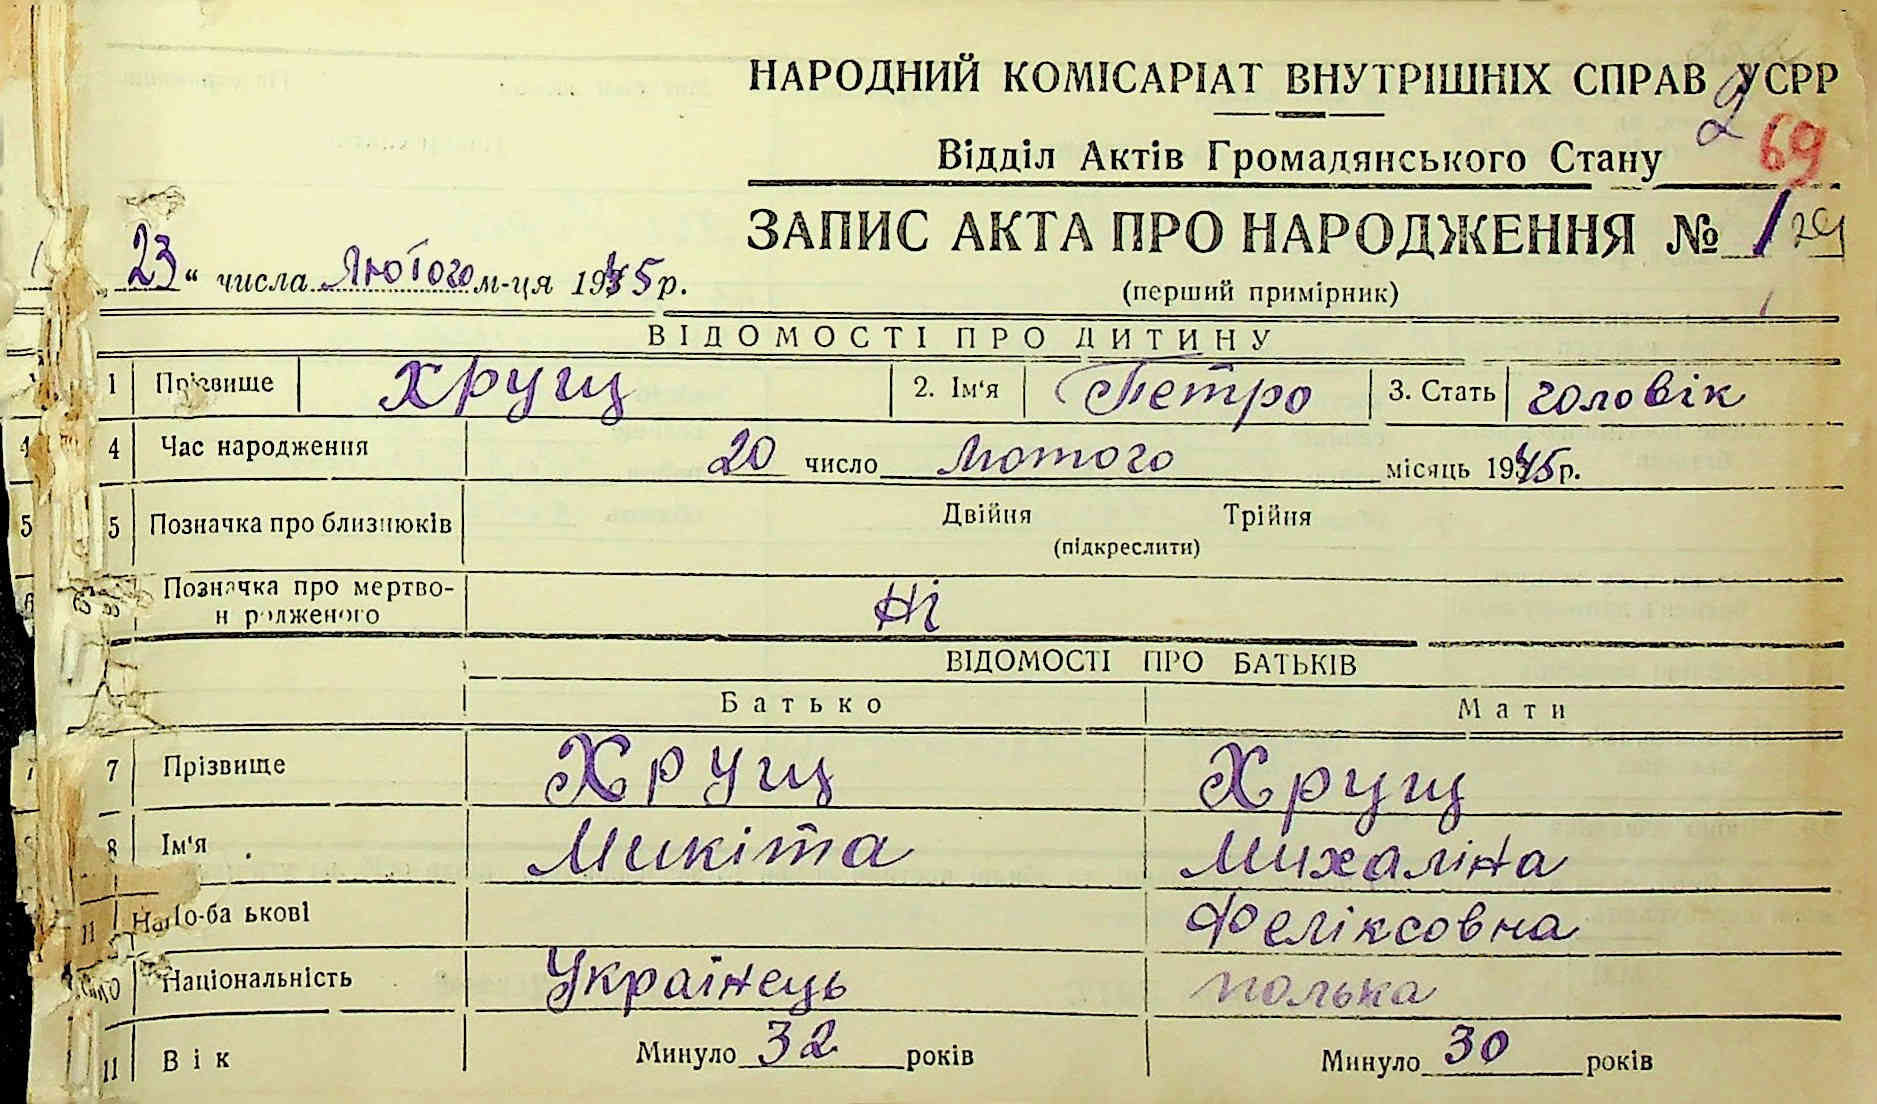 НАРОДНИЙ КОМІСАРІАТ ВНУТРІШНІХ СПРАВ УСРР
2
69
Відділ Актів Громадянського Стану
ЗАПИС АКТА ПРО НАРОДЖЕННЯ № 1
29
(перший примірник)
„ 23 “ числа Лютого м-ця 1945 р.
ВІДОМОСТІ ПРО ДИТИНУ
1 Прізвище Хрущ 2. Ім'я Петро 3. Стать чоловік
4 Час народження 20 число Лютого місяць 1945 р.
5 Позначка про близнюків Двійня Трійня
(підкреслити)
Позначка про мертво-
н родженого Ні
ВІДОМОСТІ ПРО БАТЬКІВ
Батько Мати
7 Прізвище Хрущ Хрущ
8 Ім'я Микіта Михаліна
По-ба ькові Феліксовна
Національність Українець полька
11 Вік Минуло 32 років Минуло 30 років